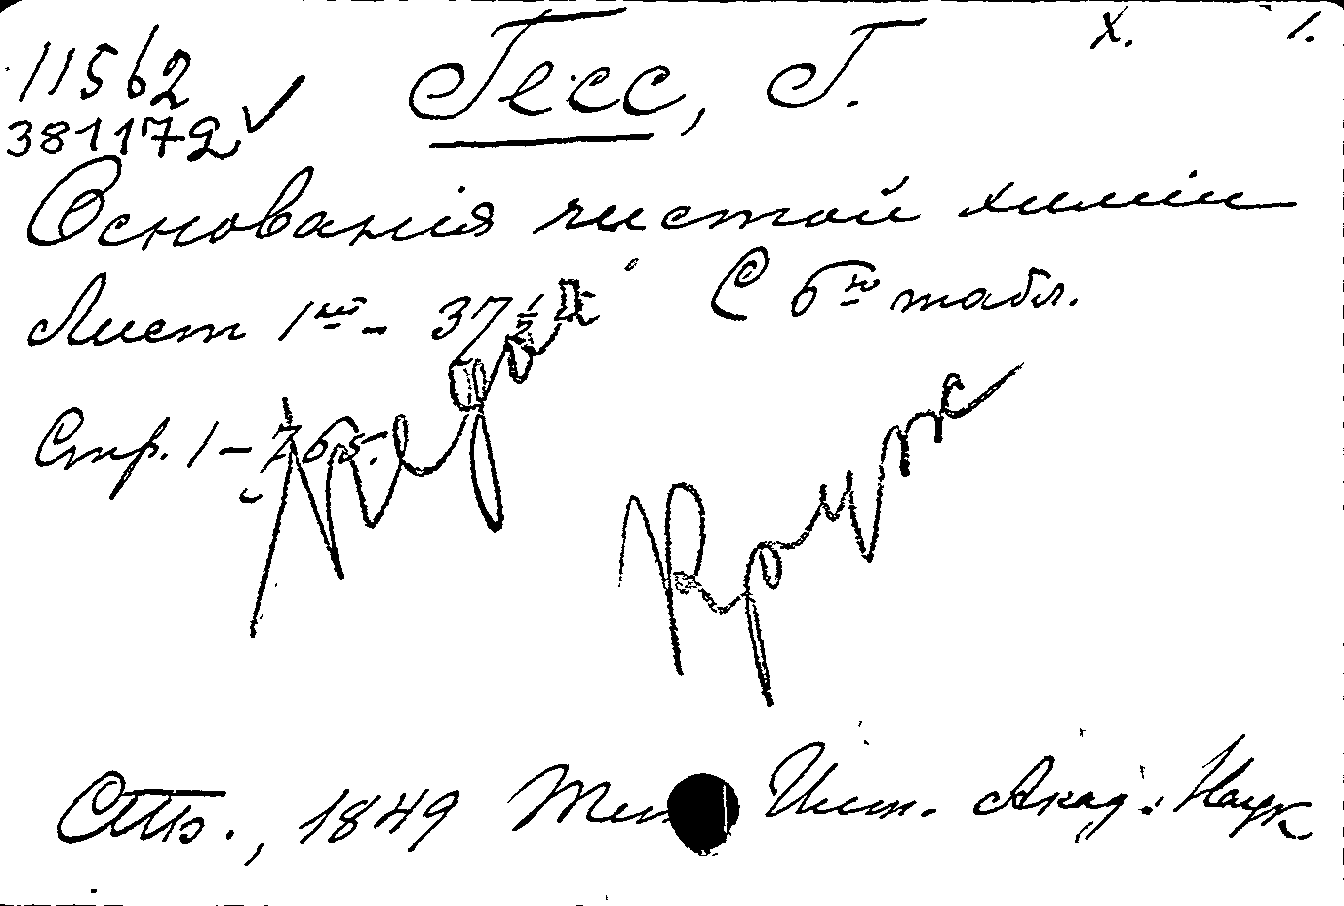 х. 1.
11562 Гесс, Г.
381172
Основанія чистой химіи
Лист 1ый - 37 1/2 С 6ю табл.
Стр. 1-765.
СПб., 1849 Тип. Имп. Акад. Наук